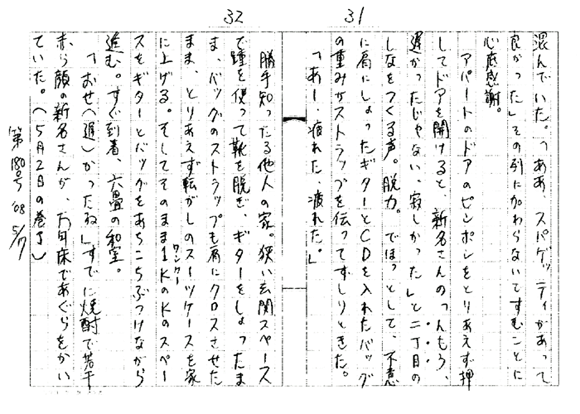 31
混んでいた。「ああ、スパゲッティがあって
良かった」その列にかわらないですむことに
心底感謝。
アパートのドアのピンポンをとりあえず押
してドアを開けると、新名さんの「んもう、
遅かったじゃない、寂しかった」と二丁目の
しなをつくる声。脱力。でほっとして、不意
に肩にしょったギターとCDを入れたバッグ
の重みがストラップを伝ってずしりときた。
「あー、疲れた、疲れた。」
32
勝手知ったる他人の家。狭い玄関スペース
で踵を使って靴を脱ぎ、ギターをしょったま
ま、バッグのストラップも肩にクロスさせた
まま、とりあえず転がしのスーツケースを家
に上げる。そしてそのまま1KのKのスペー
ワンケー
スをギターとバッグをあちこちぶつけながら
進む。すぐ到着、六畳の和室。
「おせ〜遅〜かったね」すでに焼酎で若干
赤ら顔の新名さんが、万年床であぐらをかい
ていた。(5月2日の巻了)
第180号 '08 5/7